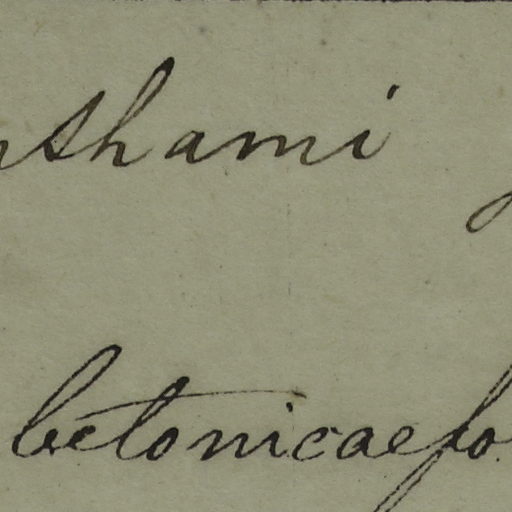 nthami
betonicaefo